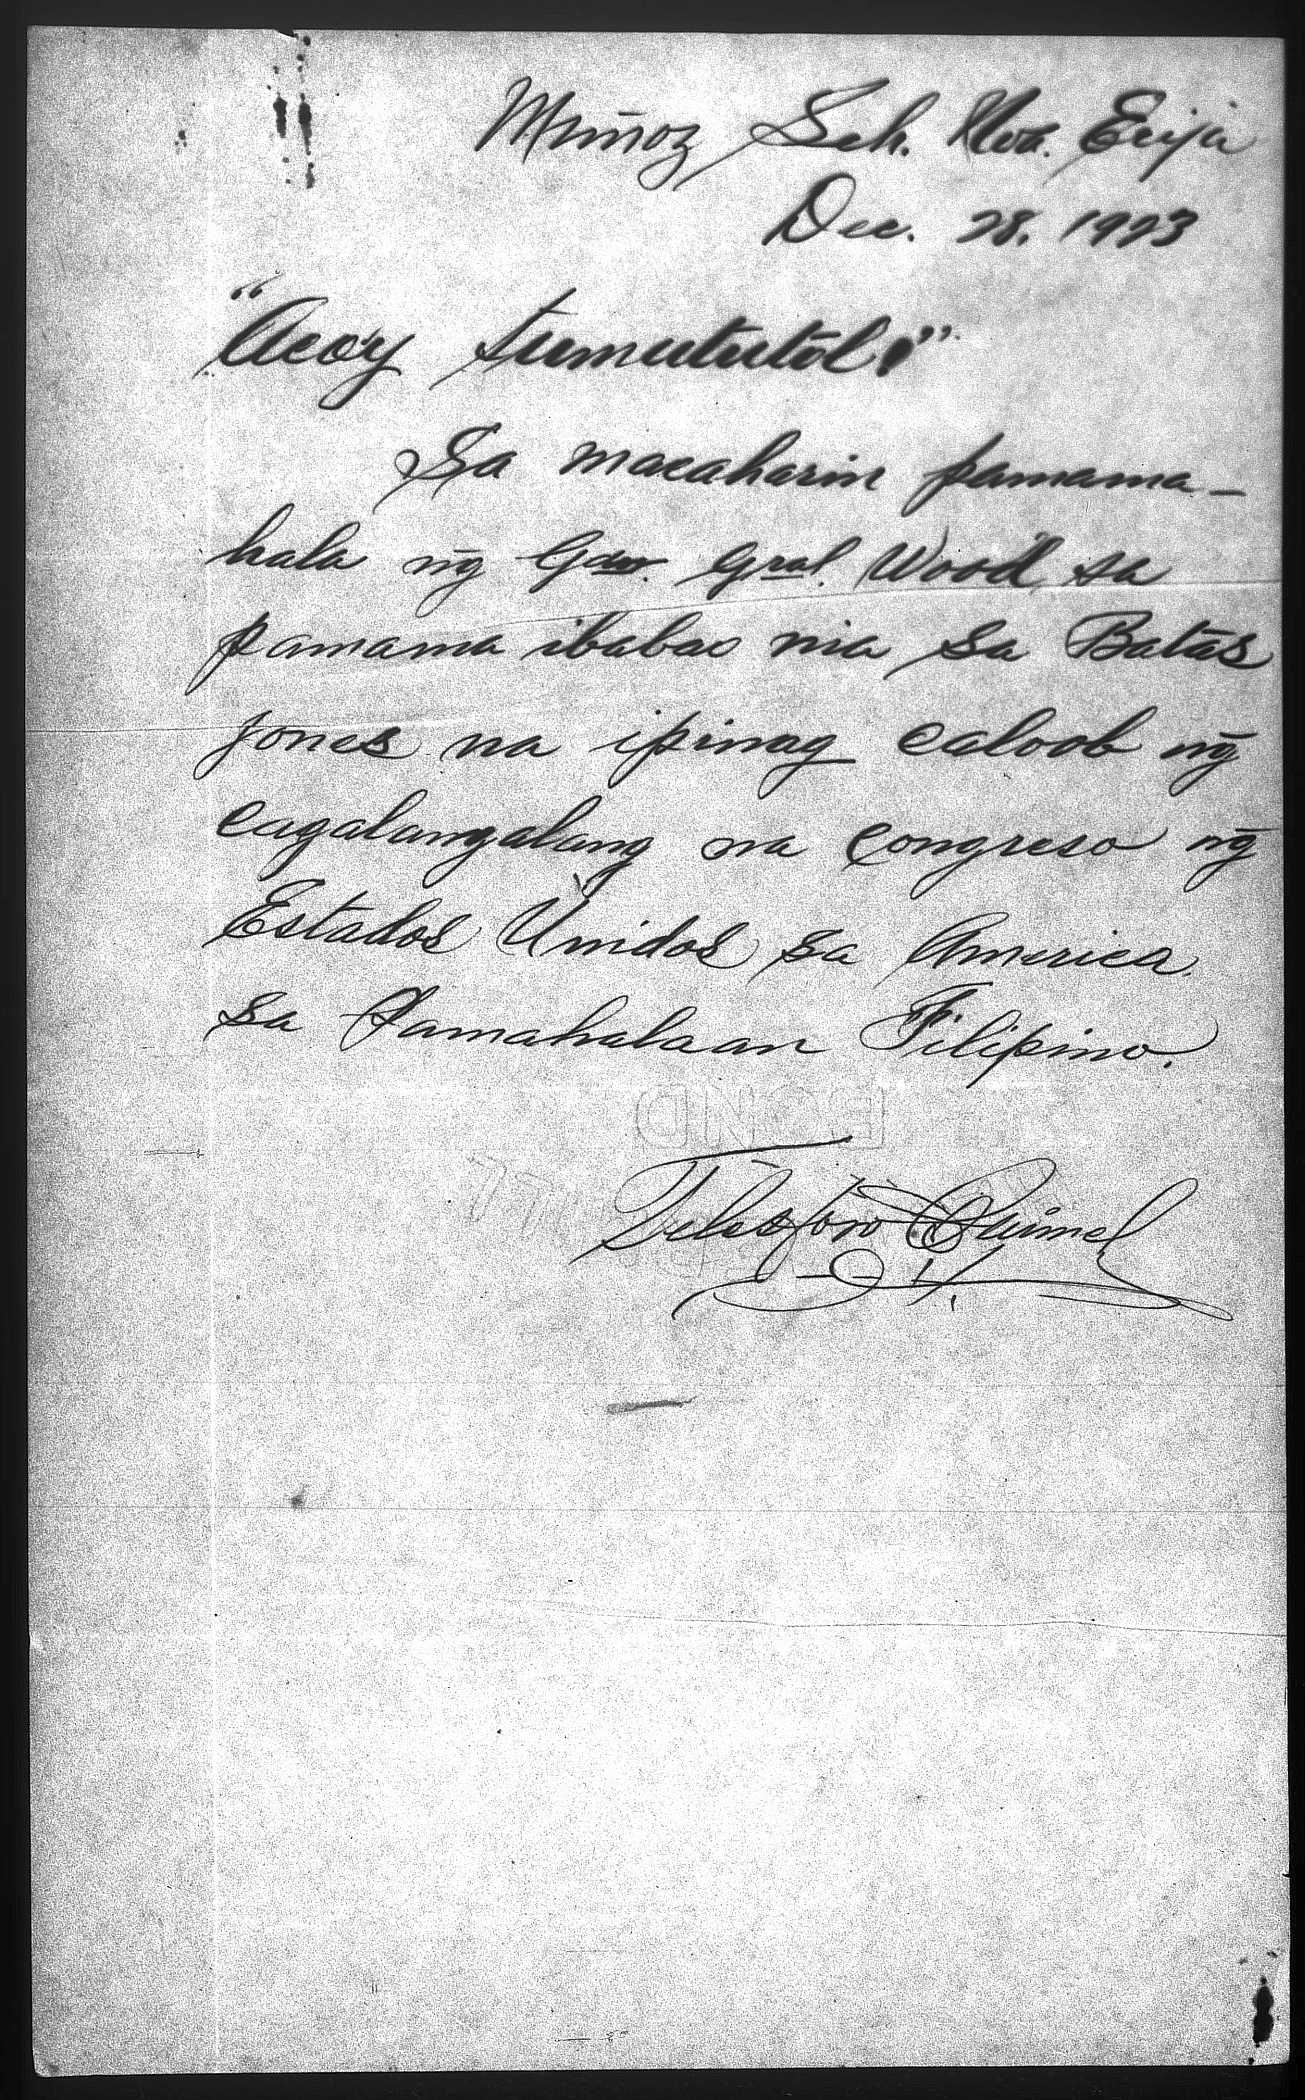 Muñoz Sch. Nva. Ecija
Dec. 28, 1923
"Acoy tumututōl."
Sa macaharin pamama-
hala ng̃ Gov. Gral. Wood sa
pamama ibabao nia sa Batās
Jones na ipinag caloob ng̃
cagalanggalang na Congreso ng̃
Estados Unidos sa America
sa Pamahalaan Filipino.
BOND
Telesforo